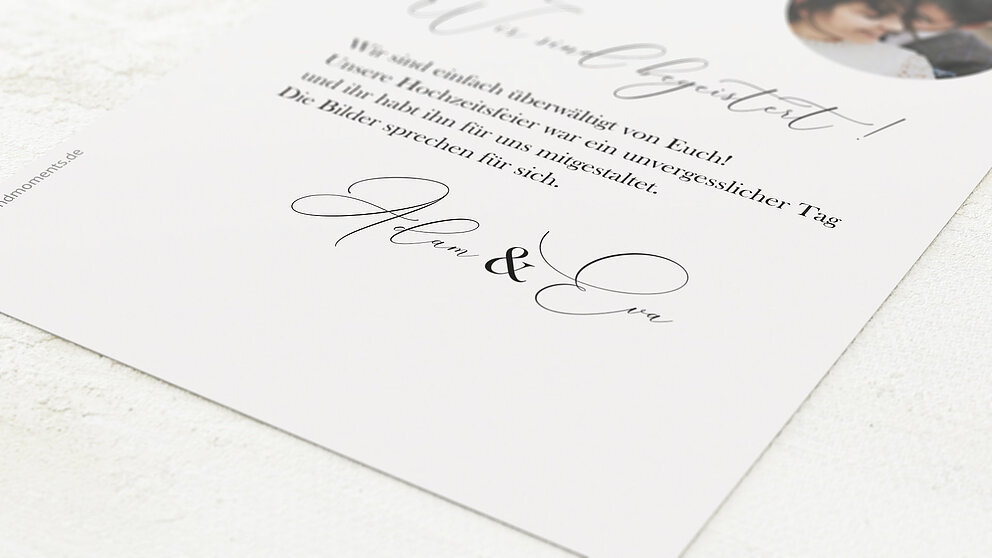 Wir sind begeistert!
Wir sind einfach überwältigt von Euch!
Unsere Hochzeitsfeier war ein unvergesslicher Tag
und ihr habt ihn für uns mitgestaltet.
Die Bilder sprechen für sich.
Adam & Eva
ndmoments.de